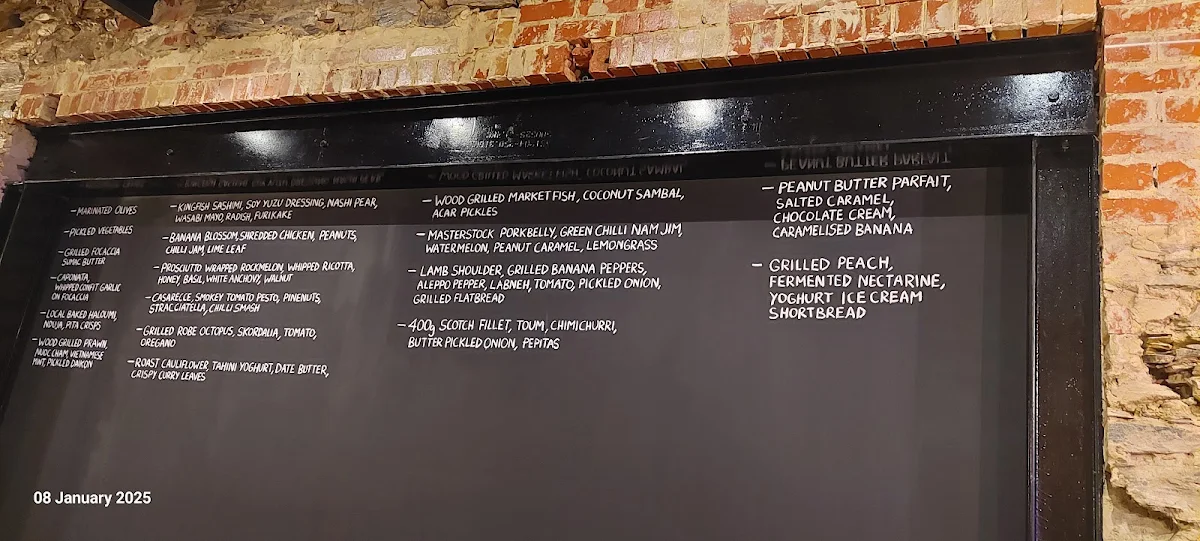 — MARINATED OLIVES
— PICKLED VEGETABLES
— GRILLED FOCACCIA
SUMAC BUTTER
— CAPONATA,
WHIPPED CONFIT GARLIC
ON FOCACCIA
— LOCAL BAKED HALOUMI,
NDUJA, PITA CRISPS
— WOOD GRILLED PRAWN,
NUOC CHAM, VIETNAMESE
MINT, PICKLED DAIKON
— KINGFISH SASHIMI, SOY YUZU DRESSING, NASHI PEAR,
WASABI MAYO, RADISH, FURIKAKE
— BANANA BLOSSOM, SHREDDED CHICKEN, PEANUTS,
CHILLI JAM, LIME LEAF
— PROSCIUTTO WRAPPED ROCKMELON, WHIPPED RICOTTA,
HONEY, BASIL, WHITE ANCHOVY, WALNUT
— CASARECCE, SMOKEY TOMATO PESTO, PINENUTS,
STRACCIATELLA, CHILLI SMASH
— GRILLED ROBE OCTOPUS, SKORDALIA, TOMATO,
OREGANO
— ROAST CAULIFLOWER, TAHINI YOGHURT, DATE BUTTER,
CRISPY CURRY LEAVES
— WOOD GRILLED MARKET FISH, COCONUT SAMBAL,
ACAR PICKLES
— MASTERSTOCK PORKBELLY, GREEN CHILLI NAM JIM,
WATERMELON, PEANUT CARAMEL, LEMONGRASS
— LAMB SHOULDER, GRILLED BANANA PEPPERS,
ALEPPO PEPPER, LABNEH, TOMATO, PICKLED ONION,
GRILLED FLATBREAD
— 400g SCOTCH FILLET, TOUM, CHIMICHURRI,
BUTTER PICKLED ONION, PEPITAS
— PEANUT BUTTER PARFAIT,
SALTED CARAMEL,
CHOCOLATE CREAM,
CARAMELISED BANANA
— GRILLED PEACH,
FERMENTED NECTARINE,
YOGHURT ICE CREAM
SHORTBREAD
08 January 2025